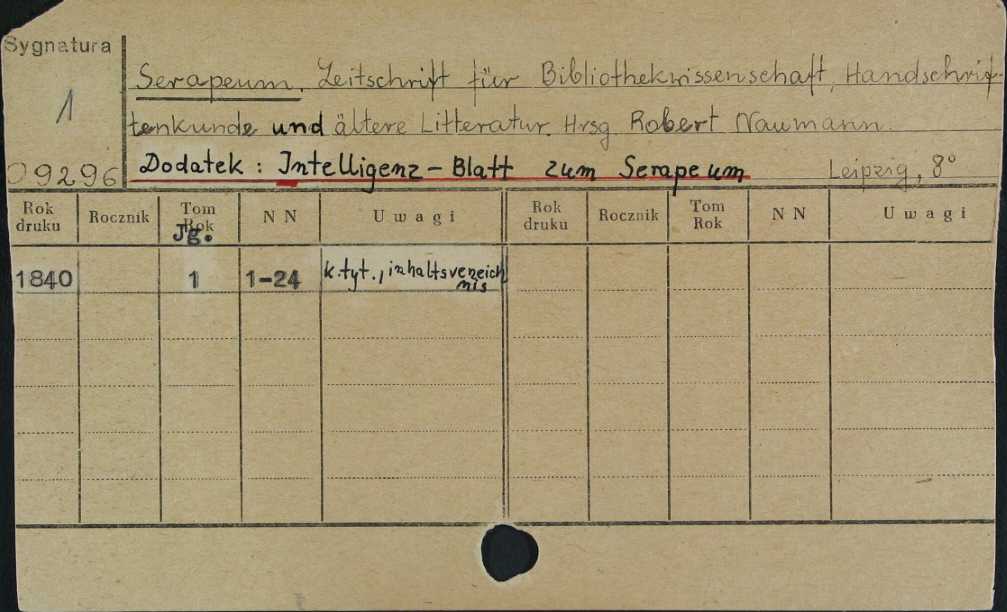 Sygnatura
1
09296
Serapeum. Zeitschrift für Bibliothekwissenschaft, Handschrif-
tenkunde und ältere Litteratur. Hrsg. Robert Naumann.
Dodatek : Intelligenz-Blatt zum Serapeum Leipzig, 8°
Rok druku Rocznik Tom Rok Jg. NN Uwagi Rok druku Rocznik Tom Rok NN Uwagi
1840 1 1-24 k.tyt., inhaltsvezeich
nis